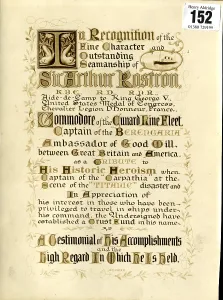 Henry Aldridge
152
In Recognition of the
Fine Character and
Outstanding
Seamanship of
Sir Arthur Rostron,
K.B.E. R.D. R.N.R.
Aide-de-Camp to King George V,
United States Medal of Congress,
Chevalier Legion D'Honneur, France.
Commodore of the Cunard Line Fleet,
Captain of the BERENGARIA
Ambassador of Good Will,
between Great Britain and America.
as a TRIBUTE to
His Historic Heroism when
Captain of the Carpathia at the
Scene of the "TITANIC" disaster and
In Appreciation of
his interest in those who have been
privileged to travel in ships under
his command, the Undersigned have
established a Trust Fund in his name
as
A Testimonial of His Accomplishments
and the
High Regard In Which He Is Held.